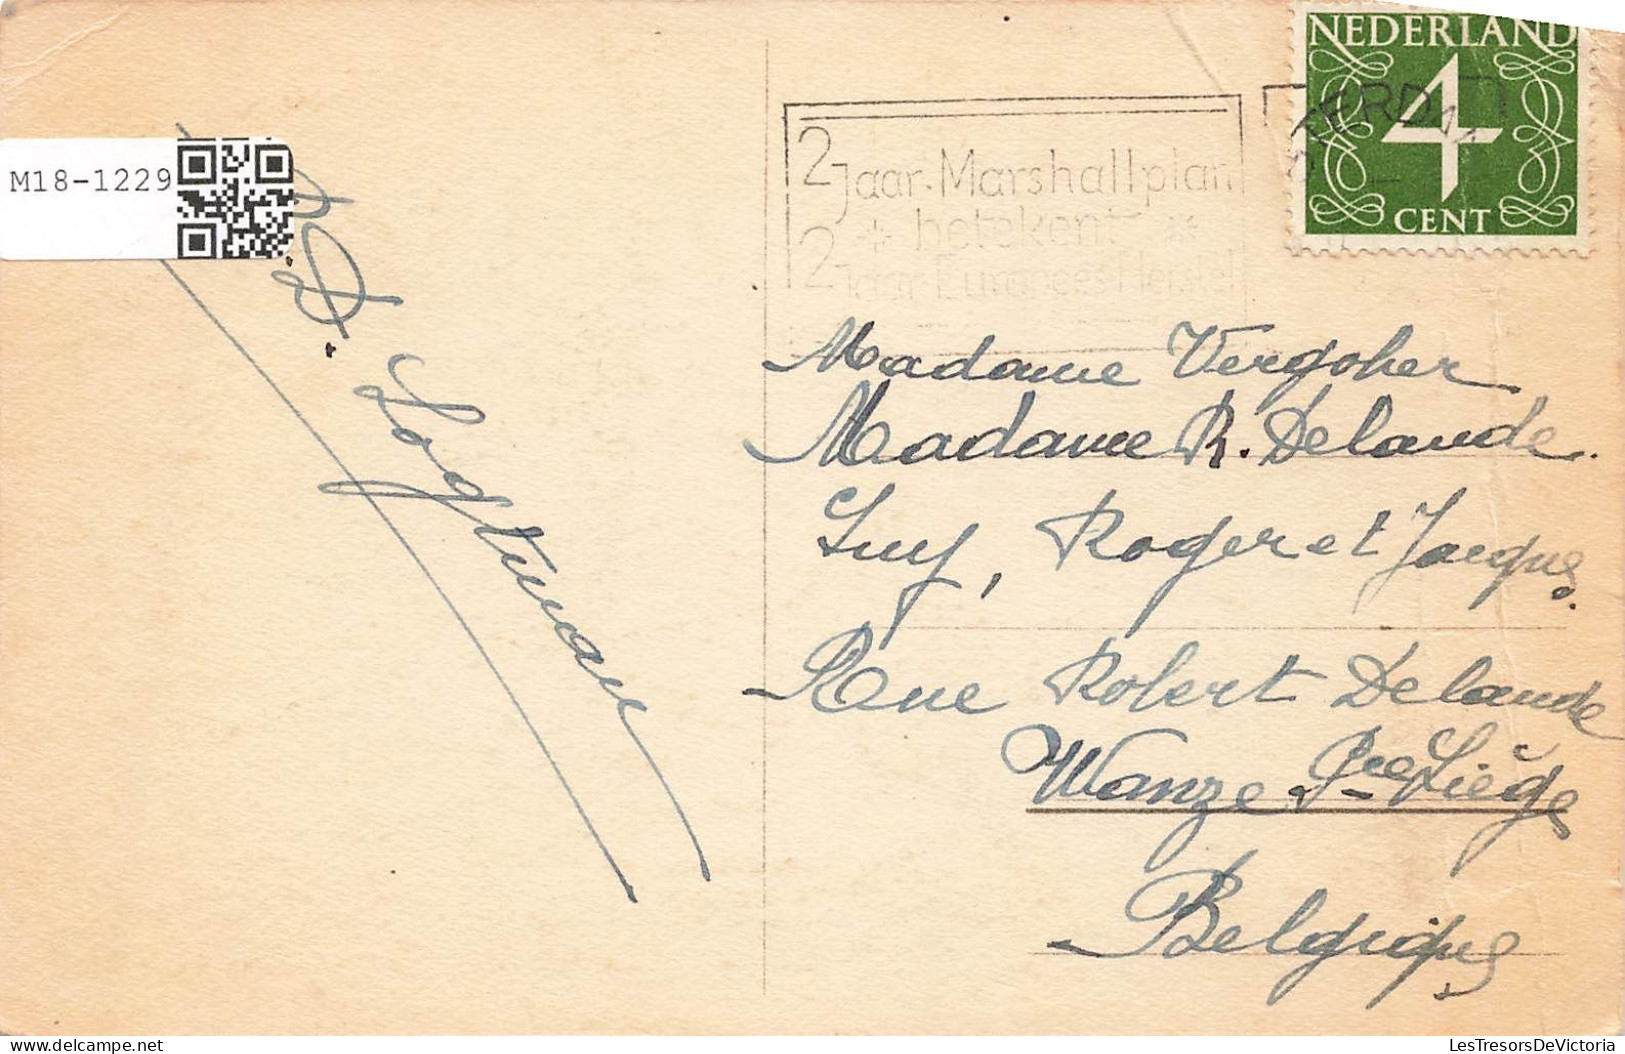 NEDERLAND
4
CENT
2 Jaar Marshallplan
* betekent *
2 Jaar Europees Herstel
M18-1229
Madame Vergoher
Madame R. Delande.
Guy, Roger et Jacques.
Rue Robert Delande
Wanze Pce Liège
Belgique
LesTresorsDeVictoria
delcampe.net